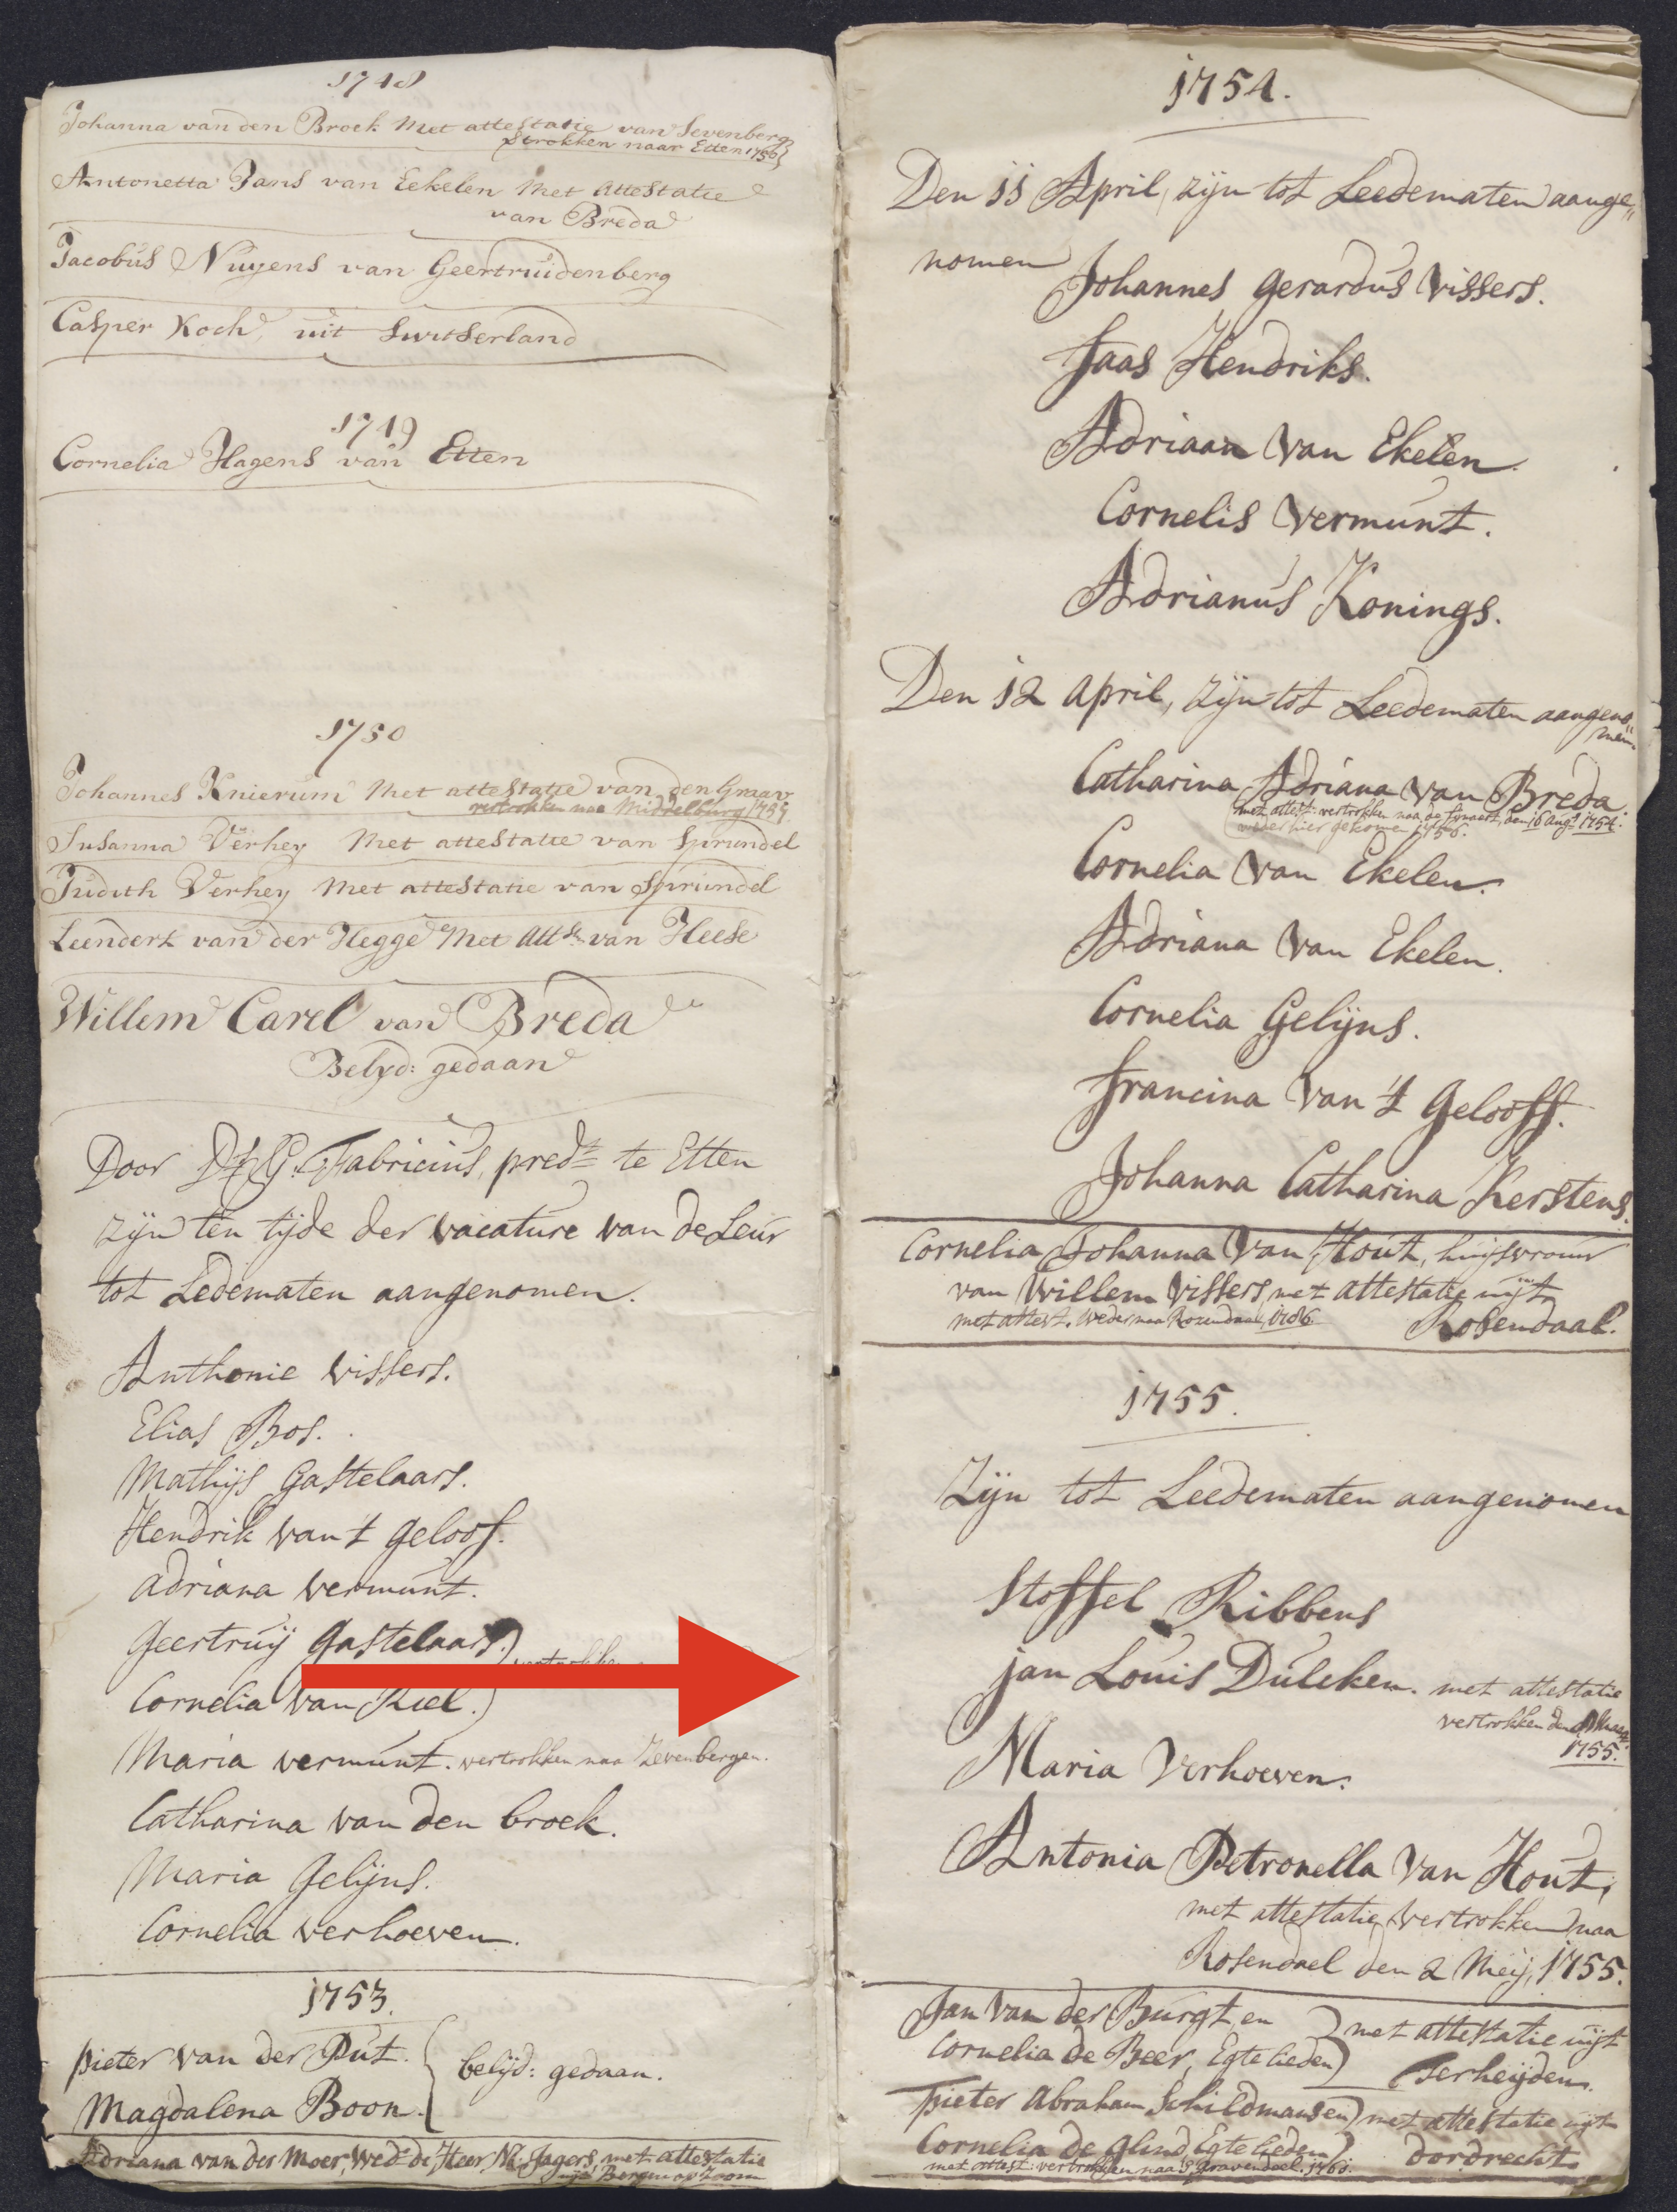 1748
Johanna van den Broek Met attestatie van Sevenberg
vertrokken naar Etten 1750
Antonetta Jans van Eekelen Met Attestatie
van Breda
Jacobus Nuyens van Geertruidenberg
Casper Koch, uit Switserland
1749
Cornelia Hagens van Etten
1750
Johannes Knierum Met attestatie van den Graav
vertrokken naa Middelburg 1754
Susanna Verhey Met attestatie van Sprundel
Judith Verhey Met attestatie van Sprundel
Leendert van der Hegge Met Att. van Heese
Willem Carel van Breda
Belyd: gedaan
Door Ds. G. Fabricius, predt. te Etten
zijn ten tijde der vacature van de Leur
tot Ledematen aangenomen.
Anthonie vissers.
Elias Bos.
Mathijs Gastelaars.
Hendrik van t geloof.
adriana vermunt.
Geertruij Gastelaars.) vertrokken
Cornelia van Riel.)
Maria vermunt. vertrokken naa Zevenbergen.
Catharina van den broek.
Maria Gelijns.
Cornelia verhoeven.
1753.
pieter van der Put. { belijd: gedaan.
Magdalena Boon.
Adriana van der Moer, Wed. de Heer N. Jagers, met attestatie
uijt Bergen op Zoom
1754.
Den 11 April, zijn tot Leedematen aange„
nomen
Johannes Gerardus Vissers.
Faas Hendriks.
Adriaan van Ekelen.
Cornelis Vermunt.
Adrianus Konings.
Den 12 April, zijn tot Leedematen aangeno„
men
Catharina Adriana van Breda.
met attest: vertrokken naa de finaert, den 16 Augt 1754.
weder hier gekomen 1756.
Cornelia van Ekelen.
Adriana van Ekelen.
Cornelia Gelijns.
Francina van 't Gelooff.
Johanna Catharina Kerstens.
Cornelia Johanna van Hout, huijsvrouw
van Willem Vissers, met attestatie uijt
Rosendaal.
met attest. weder naa Rozendaal, 1786.
1755.
Zijn tot Leedematen aangenomen
Stoffel Ribbens
jan Louis Dulcken. met attestatie
vertrokken den Maart
1755.
Maria Verhoeven.
Antonia Petronella van Hout,
met attestatie vertrokken naa
Rosendael den 2 Meij, 1755.
Jan van der Burgt, en ) met attestatie uijt
Cornelia de Beer, Egte lieden) Terheijden.
pieter Abraham Schildmans en) met attestatie uijt
Cornelia de Glind, Egte lieden). dordrecht.
met attest: vertrokken naa 's Gravendeel. 1760.